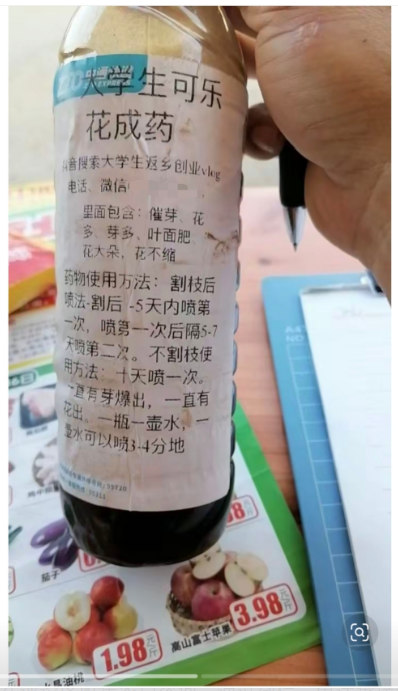 大学生可乐
花成药
抖音搜索大学生返乡创业vlog
电话、微信
里面包含：催芽、花
多、芽多、叶面肥、
花大朵，花不缩
药物使用方法：割枝后
喷法-割后 -5天内喷第
一次，喷第一次后隔5-7
天喷第二次。不割枝使
用方法：十天喷一次。
一直有芽爆出，一直有
花出。一瓶一壶水，一
壶水可以喷3-4分地
茄子
8元/斤
1.98元/斤
高山富士苹果
3.98元/斤
油桃